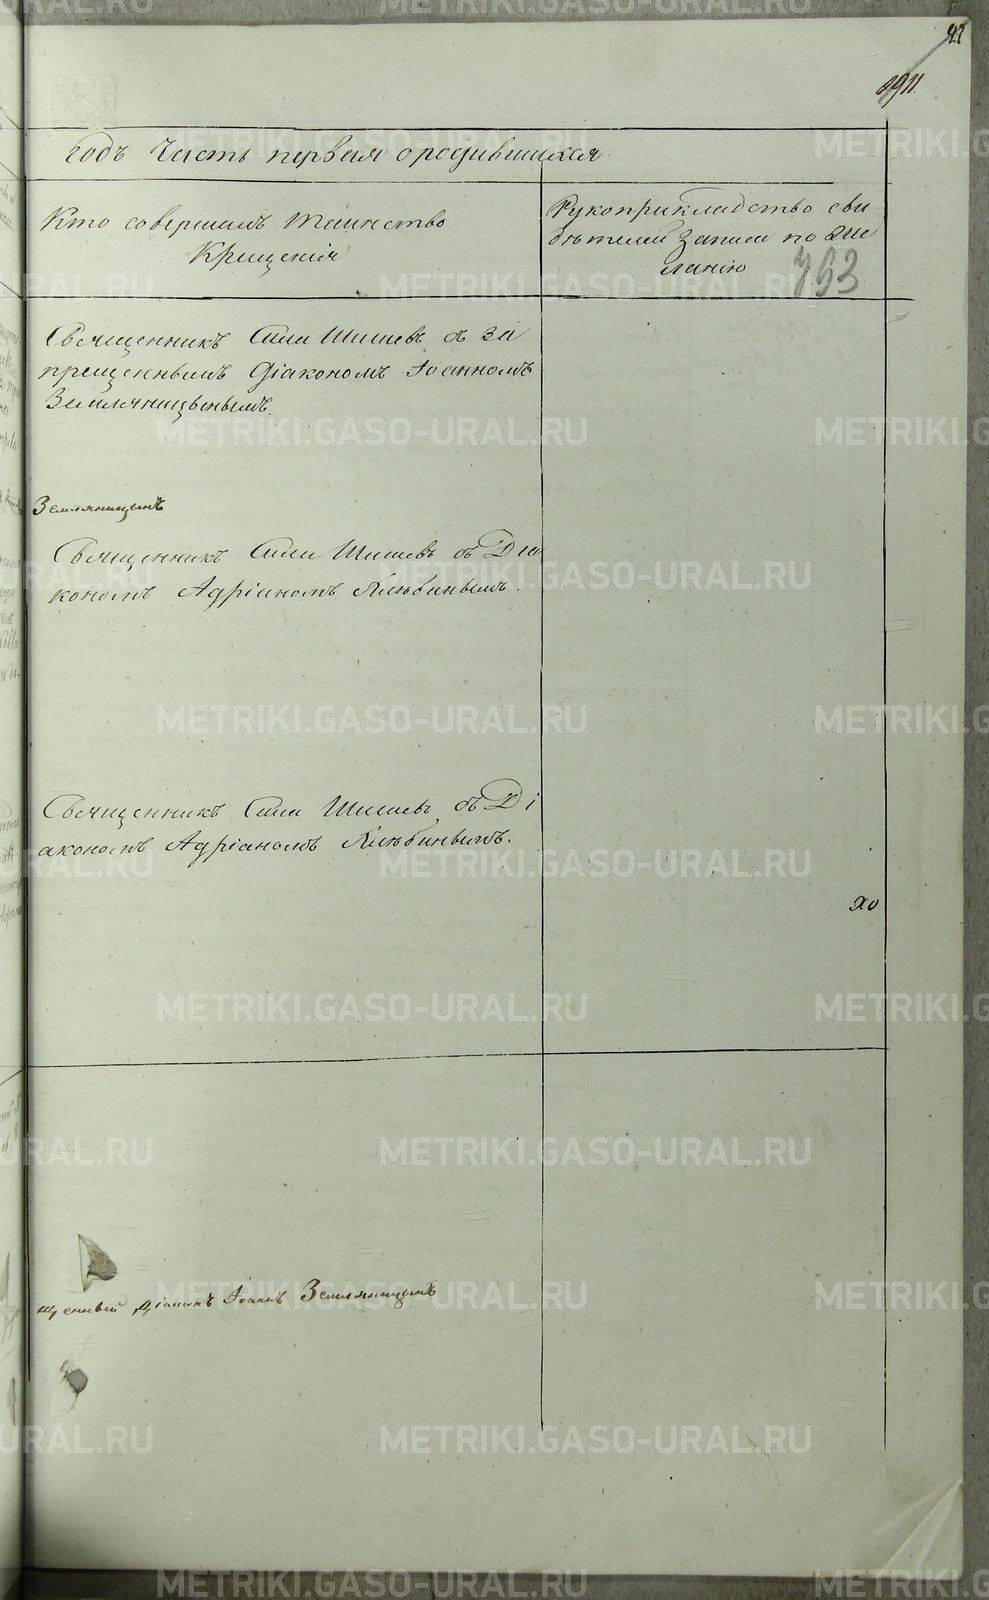 годъ Часть первая о родившихся
Кто совершалъ таинство
Крещенія
Рукоприкладство сви
дѣтелей записи по же
ланію
763
Священникъ Сила Шишевъ съ за
прещеннымъ Діакономъ Іоанномъ
Земляницынымъ.
Земляницынъ
Священникъ Сила Шишевъ съ Діа
кономъ Адріаномъ
Священникъ Сила Шишевъ съ Ді
акономъ Адріаномъ
хо
щенный Діаконъ Іоаннъ Земляницынъ
METRIKI.GASO-URAL.RU